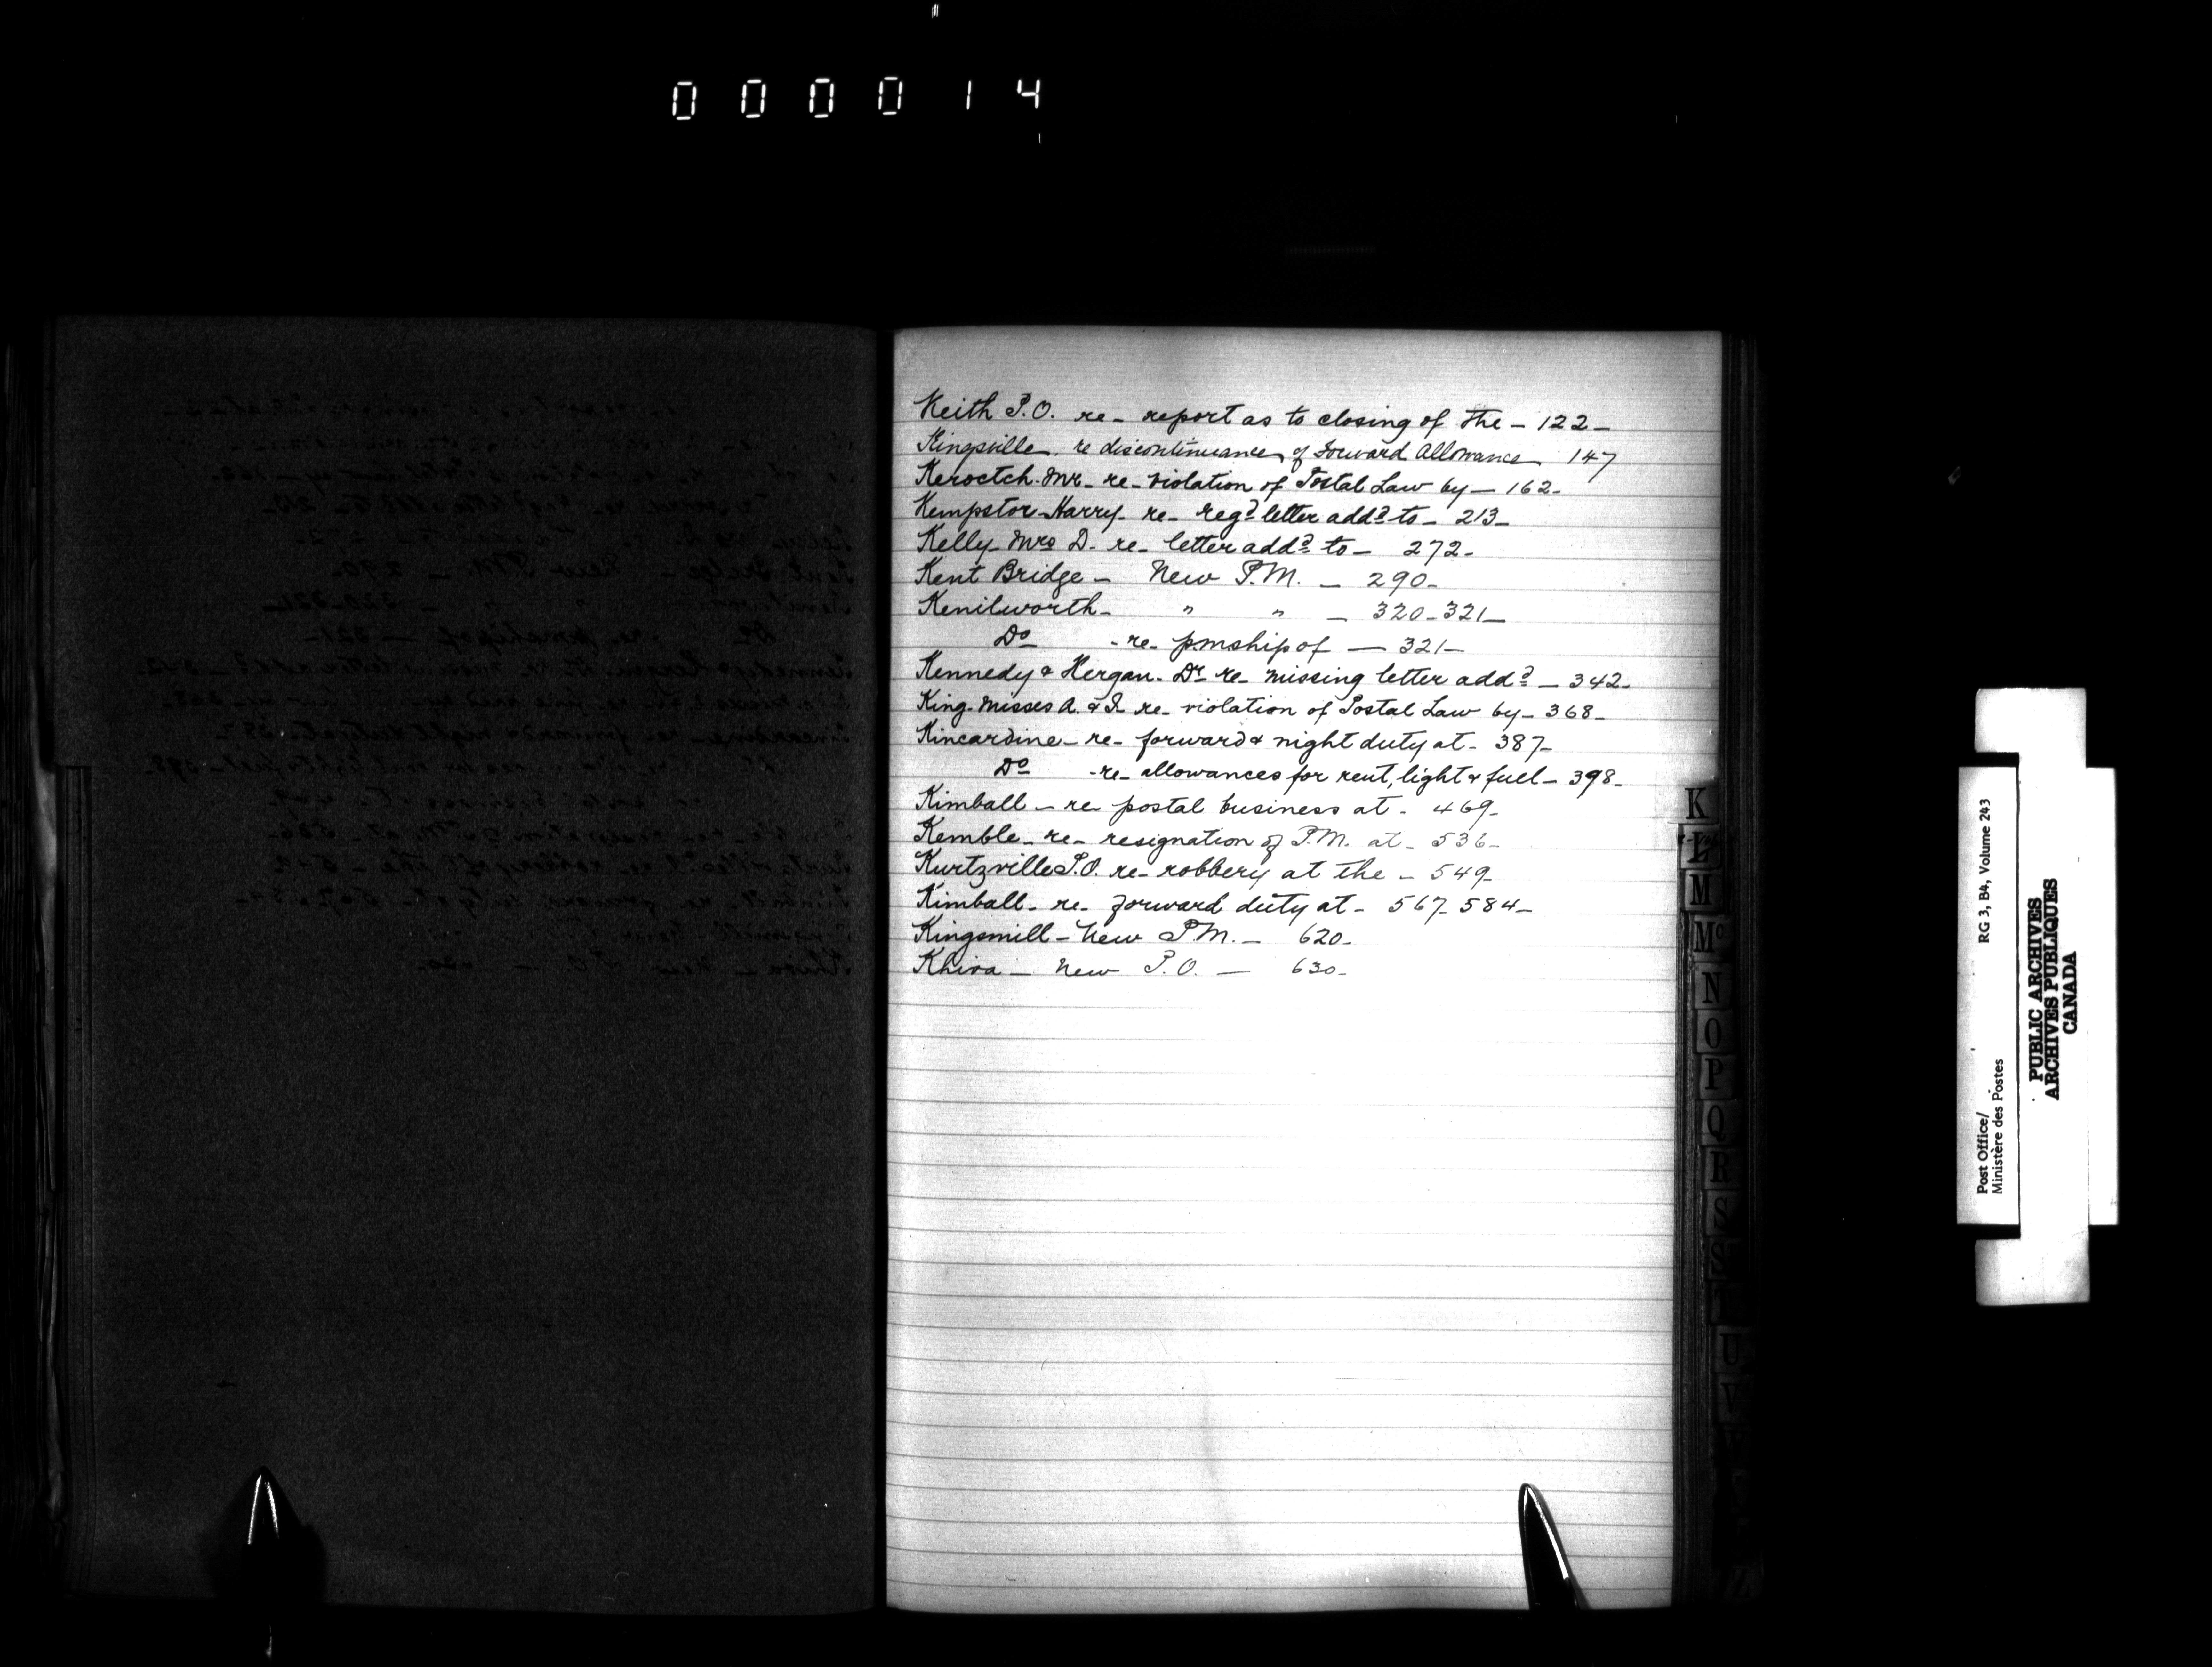 000014
Keith P.O. re - report as to closing of the - 122 -
Kingsville - re discontinuance of Forward Allowance 147
Keroetch - Mr - re - violation of Postal Law by - 162 -
Kempstor - Harry - re - Regd letter addd to - 213 -
Kelly - Mrs D - re - letter addd to - 272 -
Kent Bridge - New P.M. - 290 -
Kenilworth - " " - 320 - 321 -
Do - re - pmship of - 321 -
Kennedy & Hergan - Dr re - missing letter addd - 342 -
King - Misses A. & I. re - violation of Postal Law by - 368 -
Kincardine - re - forward & night duty at - 387 -
Do - re - allowances for rent, light & fuel - 398 -
Kimball - re postal business at - 469 -
Kemble - re - resignation of P.M. at - 536 -
Kurtzville P.O. re - robbery at the - 549 -
Kimball - re - forward duty at - 567 - 584 -
Kingsmill - New P.M. - 620 -
Khiva - New P.O. - 630 -
K
L
M
Mc
N
O
P
Q
R
S
U
V
Z
Post Office/
Ministère des Postes
RG 3, B4, Volume 243
PUBLIC ARCHIVES
ARCHIVES PUBLIQUES
CANADA